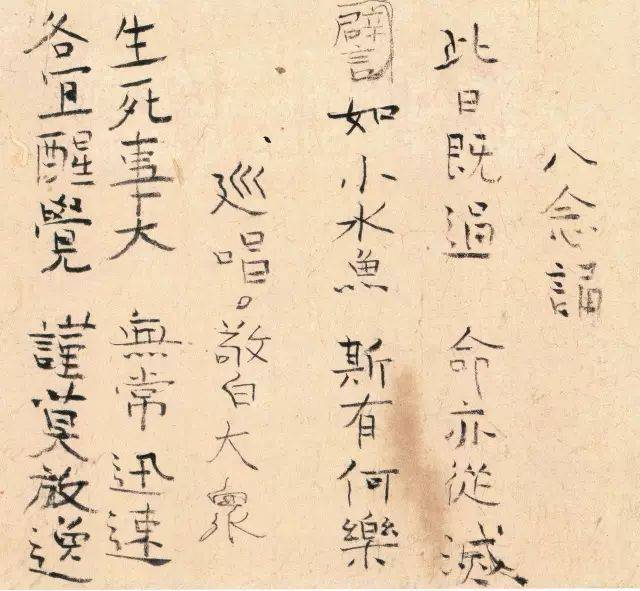 八念誦
此日既過 命亦從滅
譬如小水魚 斯有何樂
廵唱。敬白大衆
生死事大 無常迅速
各宜醒覺 謹莫放逸